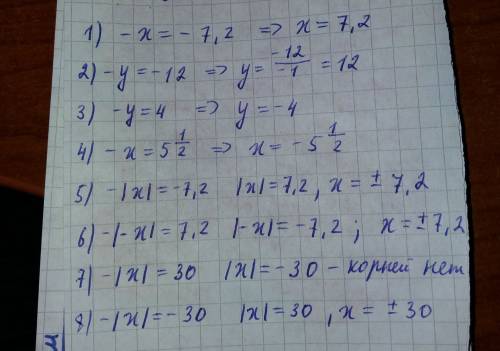 1) -x = -7,2 => x = 7,2
2) -y = -12 => y = -12/-1 = 12
3) -y = 4 => y = -4
4) -x = 5 1/2 => x = -5 1/2
5) -|x| = -7,2 |x| = 7,2, x = ± 7,2
6) -|-x| = 7,2 |-x| = -7,2; x = ±7,2
7) -|x| = 30 |x| = -30 - корней нет
8) -|x| = -30 |x| = 30, x = ± 30